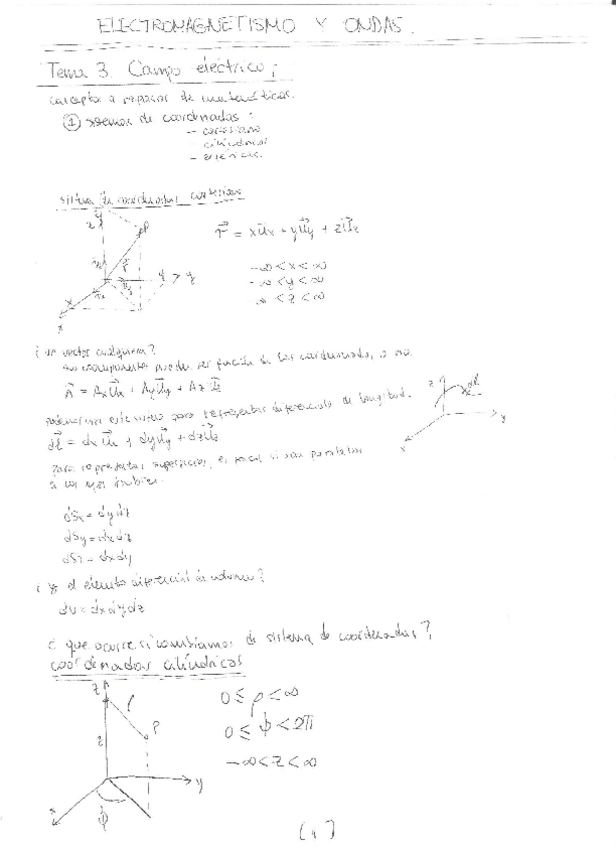 ELECTROMAGNETISMO Y ONDAS.
Tema 3. Campo eléctrico;
de matemáticas.
① sistemas de coordenadas:
- cartesiano
- cilíndricas
- esféricas.
sistema de coordenadas cartesianas
r⃗ = xu⃗x + yu⃗y + zu⃗z
-∞ < x < ∞
-∞ < y < ∞
∞ < z < ∞
¿ un vector cualquiera?
sus componentes pueden ser función de las coordenadas, o no
A⃗ = Axu⃗x + Ayu⃗y + Azu⃗z
para representar diferenciales de longitud.
dl⃗ = dxu⃗x + dyu⃗y + dzu⃗z
para representar superficies, es fácil si son paralelas
a los ejes
dSx = dydz
dSy = dxdz
dSz = dxdy
¿ y el elemento diferencial de volumen?
dv = dxdydz
¿ que ocurre si cambiamos de sistema de coordenadas?
coordenadas cilíndricas
0 ≤ ρ < ∞
0 ≤ ϕ < 2π
-∞ < z < ∞
z
ρ
P
z
y
x
ϕ
(1)